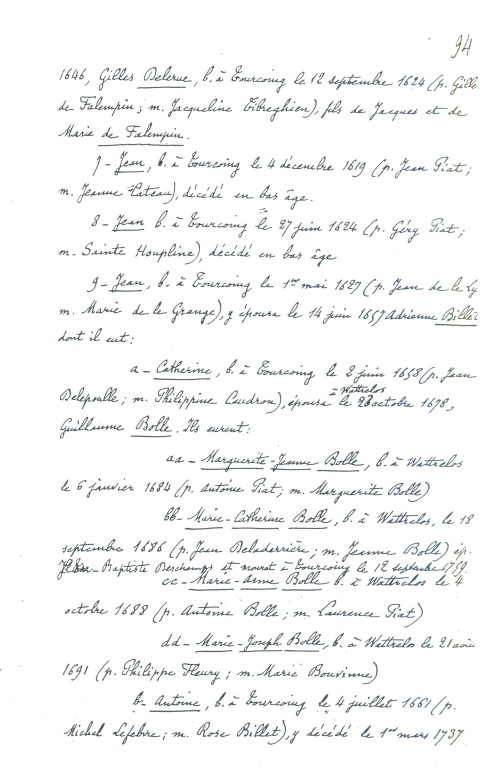 94
1646, Gilles Delerue, b. à Tourcoing le 12 septembre 1624 (p. Gille
de Falempin ; m. Jacqueline Tibreghien), fils de Jacques et de
Marie de Falempin.
7 - Jean, b. à Tourcoing le 4 décembre 1619 (p. Jean Piat ;
m. Jeanne Hateau), décédé en bas âge.
8 - Jean b. à Tourcoing le 27 juin 1624 (p. Géry Piat ;
m. Sainte Houpline), décédé en bas âge
9 - Jean, b. à Tourcoing le 1er mai 1627 (p. Jean de le Ly
m. Marie de le Grange), y épousa le 14 juin 1657 Adrianne Billet
dont il eut :
a - Catherine, b. à Tourcoing le 2 juin 1658 (p. Jean
Delepoulle ; m. Philippine Caudron), épousa à Wattrelos le 28 octobre 1678,
Guillaume Bolle. Ils eurent :
aa - Marguerite-Jeanne Bolle, b. à Wattrelos
le 6 janvier 1684 (p. Antoine Piat ; m. Marguerite Bolle)
bb - Marie-Catherine Bolle, b. à Wattrelos, le 18
septembre 1686 (p. Jean Deladerrière ; m. Jeanne Bolle) ép.
Baptiste Deschamps et mourut à Tourcoing le 12 septembre 1759.
cc - Marie-Anne Bolle b. à Wattrelos le 4
octobre 1688 (p. Antoine Bolle ; m. Laurence Piat)
dd - Marie-Joseph Bolle, b. à Wattrelos le 21 aoû
1691 (p. Philippe Fleury ; m. Marie Bouvinne)
b - Antoine, b. à Tourcoing le 4 juillet 1661 (p.
Michel Lefebvre ; m. Rose Billet), y décédé le 1er mars 1737